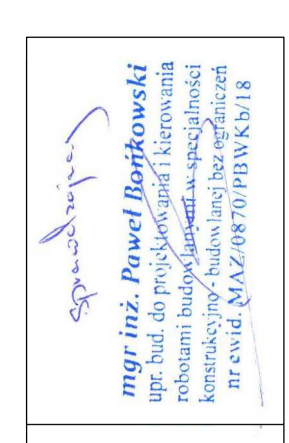 Sprawdzający
mgr inż. Paweł Bońkowski
upr. bud. do projektowania i kierowania
robotami budowlanymi w specjalności
konstrukcyjno - budowlanej bez ograniczeń
nr ewid. MAZ/0870/PBWKb/18